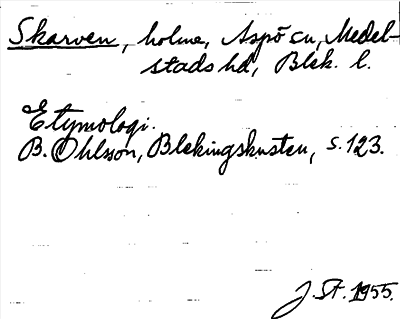 Skarven, holme, Aspö sn, Medel-
stads hd, Blek. l.
Etymologi.
B. Ohlsson, Blekingskusten, s. 123.
J. St. 1955.